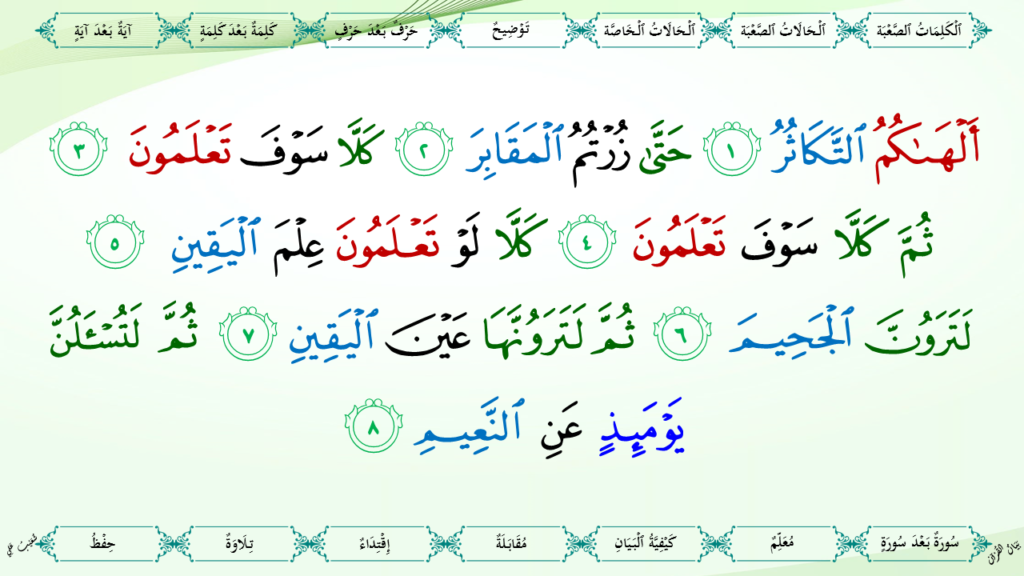 اَلْكَلِمَاتُ الصَّعْبَةُ اَلْحَالَاتُ الصَّعْبَةُ اَلْحَالَاتُ الْخَاصَّةُ تَوْضِيحٌ حَرْفٌ بَعْدَ حَرْفٍ كَلِمَةٌ بَعْدَ كَلِمَةٍ آيَةٌ بَعْدَ آيَةٍ
أَلْهَىٰكُمُ ٱلتَّكَاثُرُ ١ حَتَّىٰ زُرْتُمُ ٱلْمَقَابِرَ ٢ كَلَّا سَوْفَ تَعْلَمُونَ ٣
ثُمَّ كَلَّا سَوْفَ تَعْلَمُونَ ٤ كَلَّا لَوْ تَعْلَمُونَ عِلْمَ ٱلْيَقِينِ ٥
لَتَرَوُنَّ ٱلْجَحِيمَ ٦ ثُمَّ لَتَرَوُنَّهَا عَيْنَ ٱلْيَقِينِ ٧ ثُمَّ لَتُسْـَٔلُنَّ
يَوْمَئِذٍ عَنِ ٱلنَّعِيمِ ٨
سُورَةٌ بَعْدَ سُورَةٍ مُعَلِّمٌ كَيْفِيَّةُ الْبَيَانِ مُقَابَلَةٌ إِقْتِدَاءٌ تِلَاوَةٌ حِفْظٌ